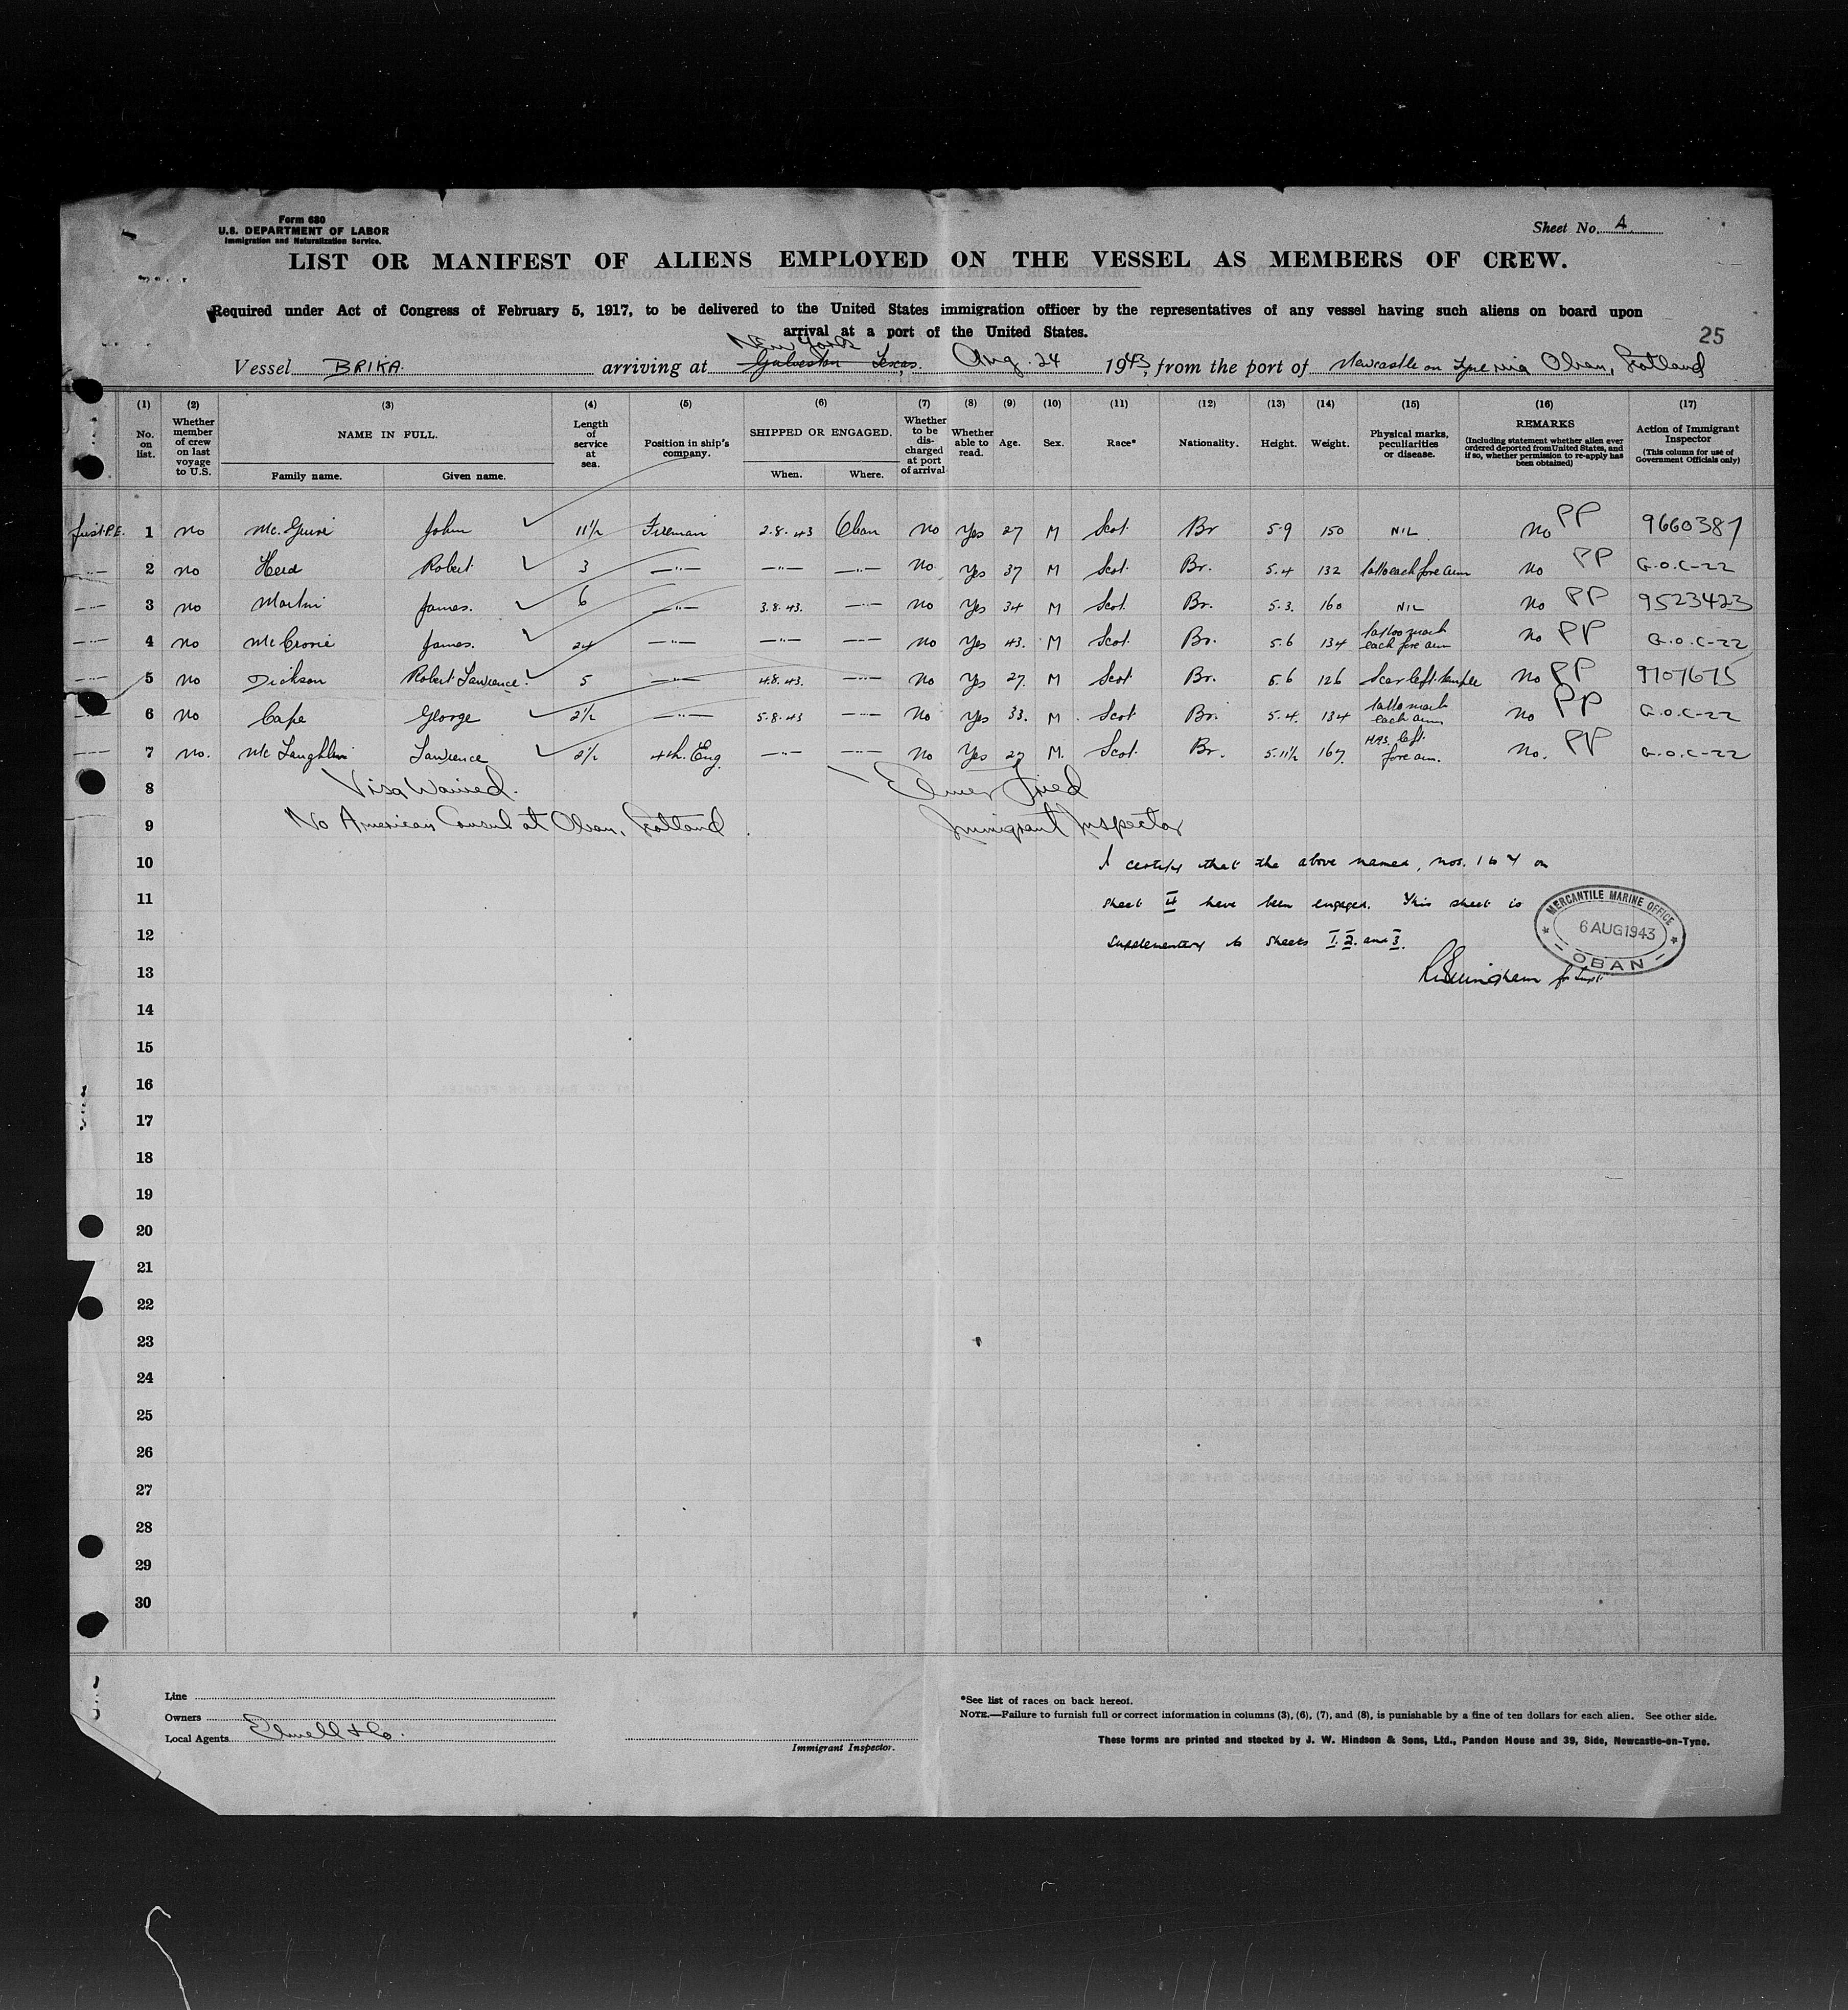 Form 680
U.S. DEPARTMENT OF LABOR
Immigration and Naturalization Service.
Sheet No. 4
LIST OR MANIFEST OF ALIENS EMPLOYED ON THE VESSEL AS MEMBERS OF CREW.
Required under Act of Congress of February 5, 1917, to be delivered to the United States immigration officer by the representatives of any vessel having such aliens on board upon
arrival at a port of the United States.
25
New York
Vessel BRIKA. arriving at Galveston Texas. Aug. 24 1943, from the port of Newcastle on Tyne via Oban, Scotland
(1) (2) (3) (4) (5) (6) (7) (8) (9) (10) (11) (12) (13) (14) (15) (16) (17)
No. on list.
Whether member of crew on last voyage to U.S.
NAME IN FULL.
Family name. Given name.
Length of service at sea.
Position in ship's company.
SHIPPED OR ENGAGED.
When. Where.
Whether to be discharged at port of arrival
Whether able to read.
Age.
Sex.
Race*
Nationality.
Height.
Weight.
Physical marks, peculiarities or disease.
REMARKS
(Including statement whether alien ever ordered deported from United States, and if so, whether permission to re-apply has been obtained)
Action of Immigrant Inspector
(This column for use of Government Officials only)
first P.E. 1 no Mc. Guire John 11½ Fireman 2.8.43 Oban No Yes 27 M Scot. Br 5.9 150 NIL No PP 9660387
—"— 2 no Herd Robert 3 —"— —"— —"— No Yes 37 M Scot. Br. 5.4 132 tattoo each fore arm No PP G.O.C-22
—"— 3 no Martin James. 6 —"— 3.8.43. —"— No Yes 34 M Scot. Br. 5.3. 160 NIL No PP 9523423
—"— 4 no McCrorie James. 24 —"— —"— —"— No Yes 43. M Scot. Br. 5.6 134 tattoo mark each fore arm No PP G.O.C-22
—"— 5 no Dickson Robert Lawrence. 5 —"— 4.8.43. —"— No Yes 27. M Scot Br. 5.6 126 Scar left temple No PP 9707675
—"— 6 No Cape George 2½ —"— 5.8.43 —"— No Yes 33. M. Scot Br. 5.4. 134 tattoo mark each arm No PP G.O.C-22
—"— 7 No. Mc Laughlin Lawrence 2½ 4th. Eng. —"— —"— No Yes 27 M. Scot Br. 5.11½ 167. left fore arm. No. PP G.O.C-22
8 Visa Waived. Elmer Fried
9 No American Consul at Oban, Scotland Immigrant Inspector
10 I certify that the above named, nos. 1 to 7 on
11 sheet 4 have been engaged. This sheet is
12 supplementary to sheets 1. 2. and 3.
MERCANTILE MARINE OFFICE
6 AUG 1943
OBAN
13 for Supt.
14
15
16
17
18
19
20
21
22
23
24
25
26
27
28
29
30
Line
Owners
Local Agents Elwell & Co.
Immigrant Inspector.
*See list of races on back hereof.
NOTE.—Failure to furnish full or correct information in columns (3), (6), (7), and (8), is punishable by a fine of ten dollars for each alien. See other side.
These forms are printed and stocked by J. W. Hindson & Sons, Ltd., Pandon House and 39, Side, Newcastle-on-Tyne.